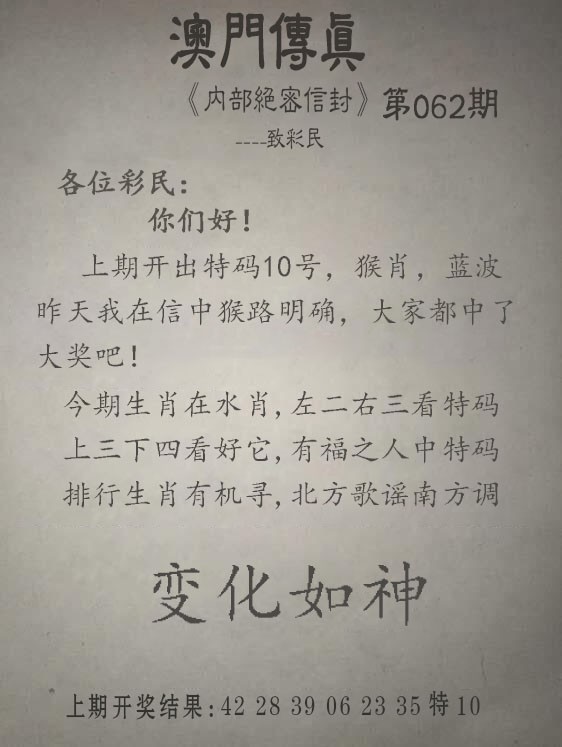 澳門傳眞
《内部絕密信封》第062期
----致彩民
各位彩民:
你们好!
上期开出特码10号，猴肖，蓝波
昨天我在信中猴路明确，大家都中了
大奖吧!
今期生肖在水肖,左二右三看特码
上三下四看好它,有福之人中特码
排行生肖有机寻,北方歌谣南方调
变化如神
上期开奖结果:42 28 39 06 23 35 特 10